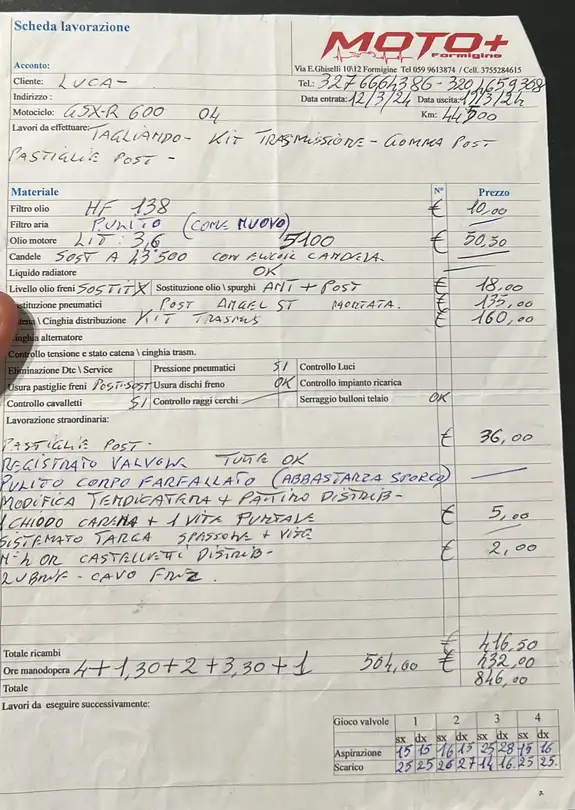 Scheda lavorazione
MOTO+
Formigine
Via E.Ghiselli 10\12 Formigine Tel 059 9613874 / Cell. 3755284615
Acconto:
Cliente: LUCA -
Tel.: 3276664386 - 3201659308
Indirizzo :
Data entrata: 12/3/24 Data uscita:
Motociclo: GSX-R 600 04
Km: 44500
Lavori da effettuare: TAGLIANDO - KIT TRASMISSIONE - GOMMA POST
PASTIGLIE POST -
Materiale N° Prezzo
Filtro olio HF 138 € 10,00
Filtro aria PULITO (COME NUOVO)
Olio motore LIT: 3,6 5100 € 50,50
Candele SOST A 43'500 CON
Liquido radiatore OK
Livello olio freni SOSTIT X Sostituzione olio \ spurghi ANT + POST € 18,00
stituzione pneumatici POST ANGEL ST MONTATA. € 135,00
\ Cinghia distribuzione KIT TRASMIS € 160,00
inghia alternatore
Controllo tensione e stato catena \ cinghia trasm.
Eliminazione Dtc \ Service Pressione pneumatici SI Controllo Luci
Usura pastiglie freni POST-SOST Usura dischi freno OK Controllo impianto ricarica
Controllo cavalletti SI Controllo raggi cerchi Serraggio bulloni telaio OK
Lavorazione straordinaria:
PASTIGLIE POST. € 36,00
REGISTRATO VALVOLE TUTTE OK
PULITO CORPO FARFALLATO (ABBASTANZA SPORCO)
MODIFICA TENDICATENA + PATTINO DISTRIB -
1 CHIODO CARENA + 1 VITE PUNTALE € 5,00
SISTEMATO TARGA SPESSORE + VITE
N° 4 OR CASTELLETTI DISTRIB - € 2,00
LUBRIF - CAVO FRIZ.
Totale ricambi € 416,50
Ore manodopera 4+1,30+2+3,30+1 504,00 € 432,00
Totale 846,00
Lavori da eseguire successivamente:
Gioco valvole 1 2 3 4
sx dx sx dx sx dx sx dx
Aspirazione 15 15 16 15 25 28 15 16
Scarico 25 25 26 27 14 16 25 25